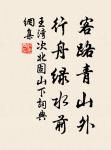 客路青山外
行舟绿水前
王湾次北固山下词典
网集